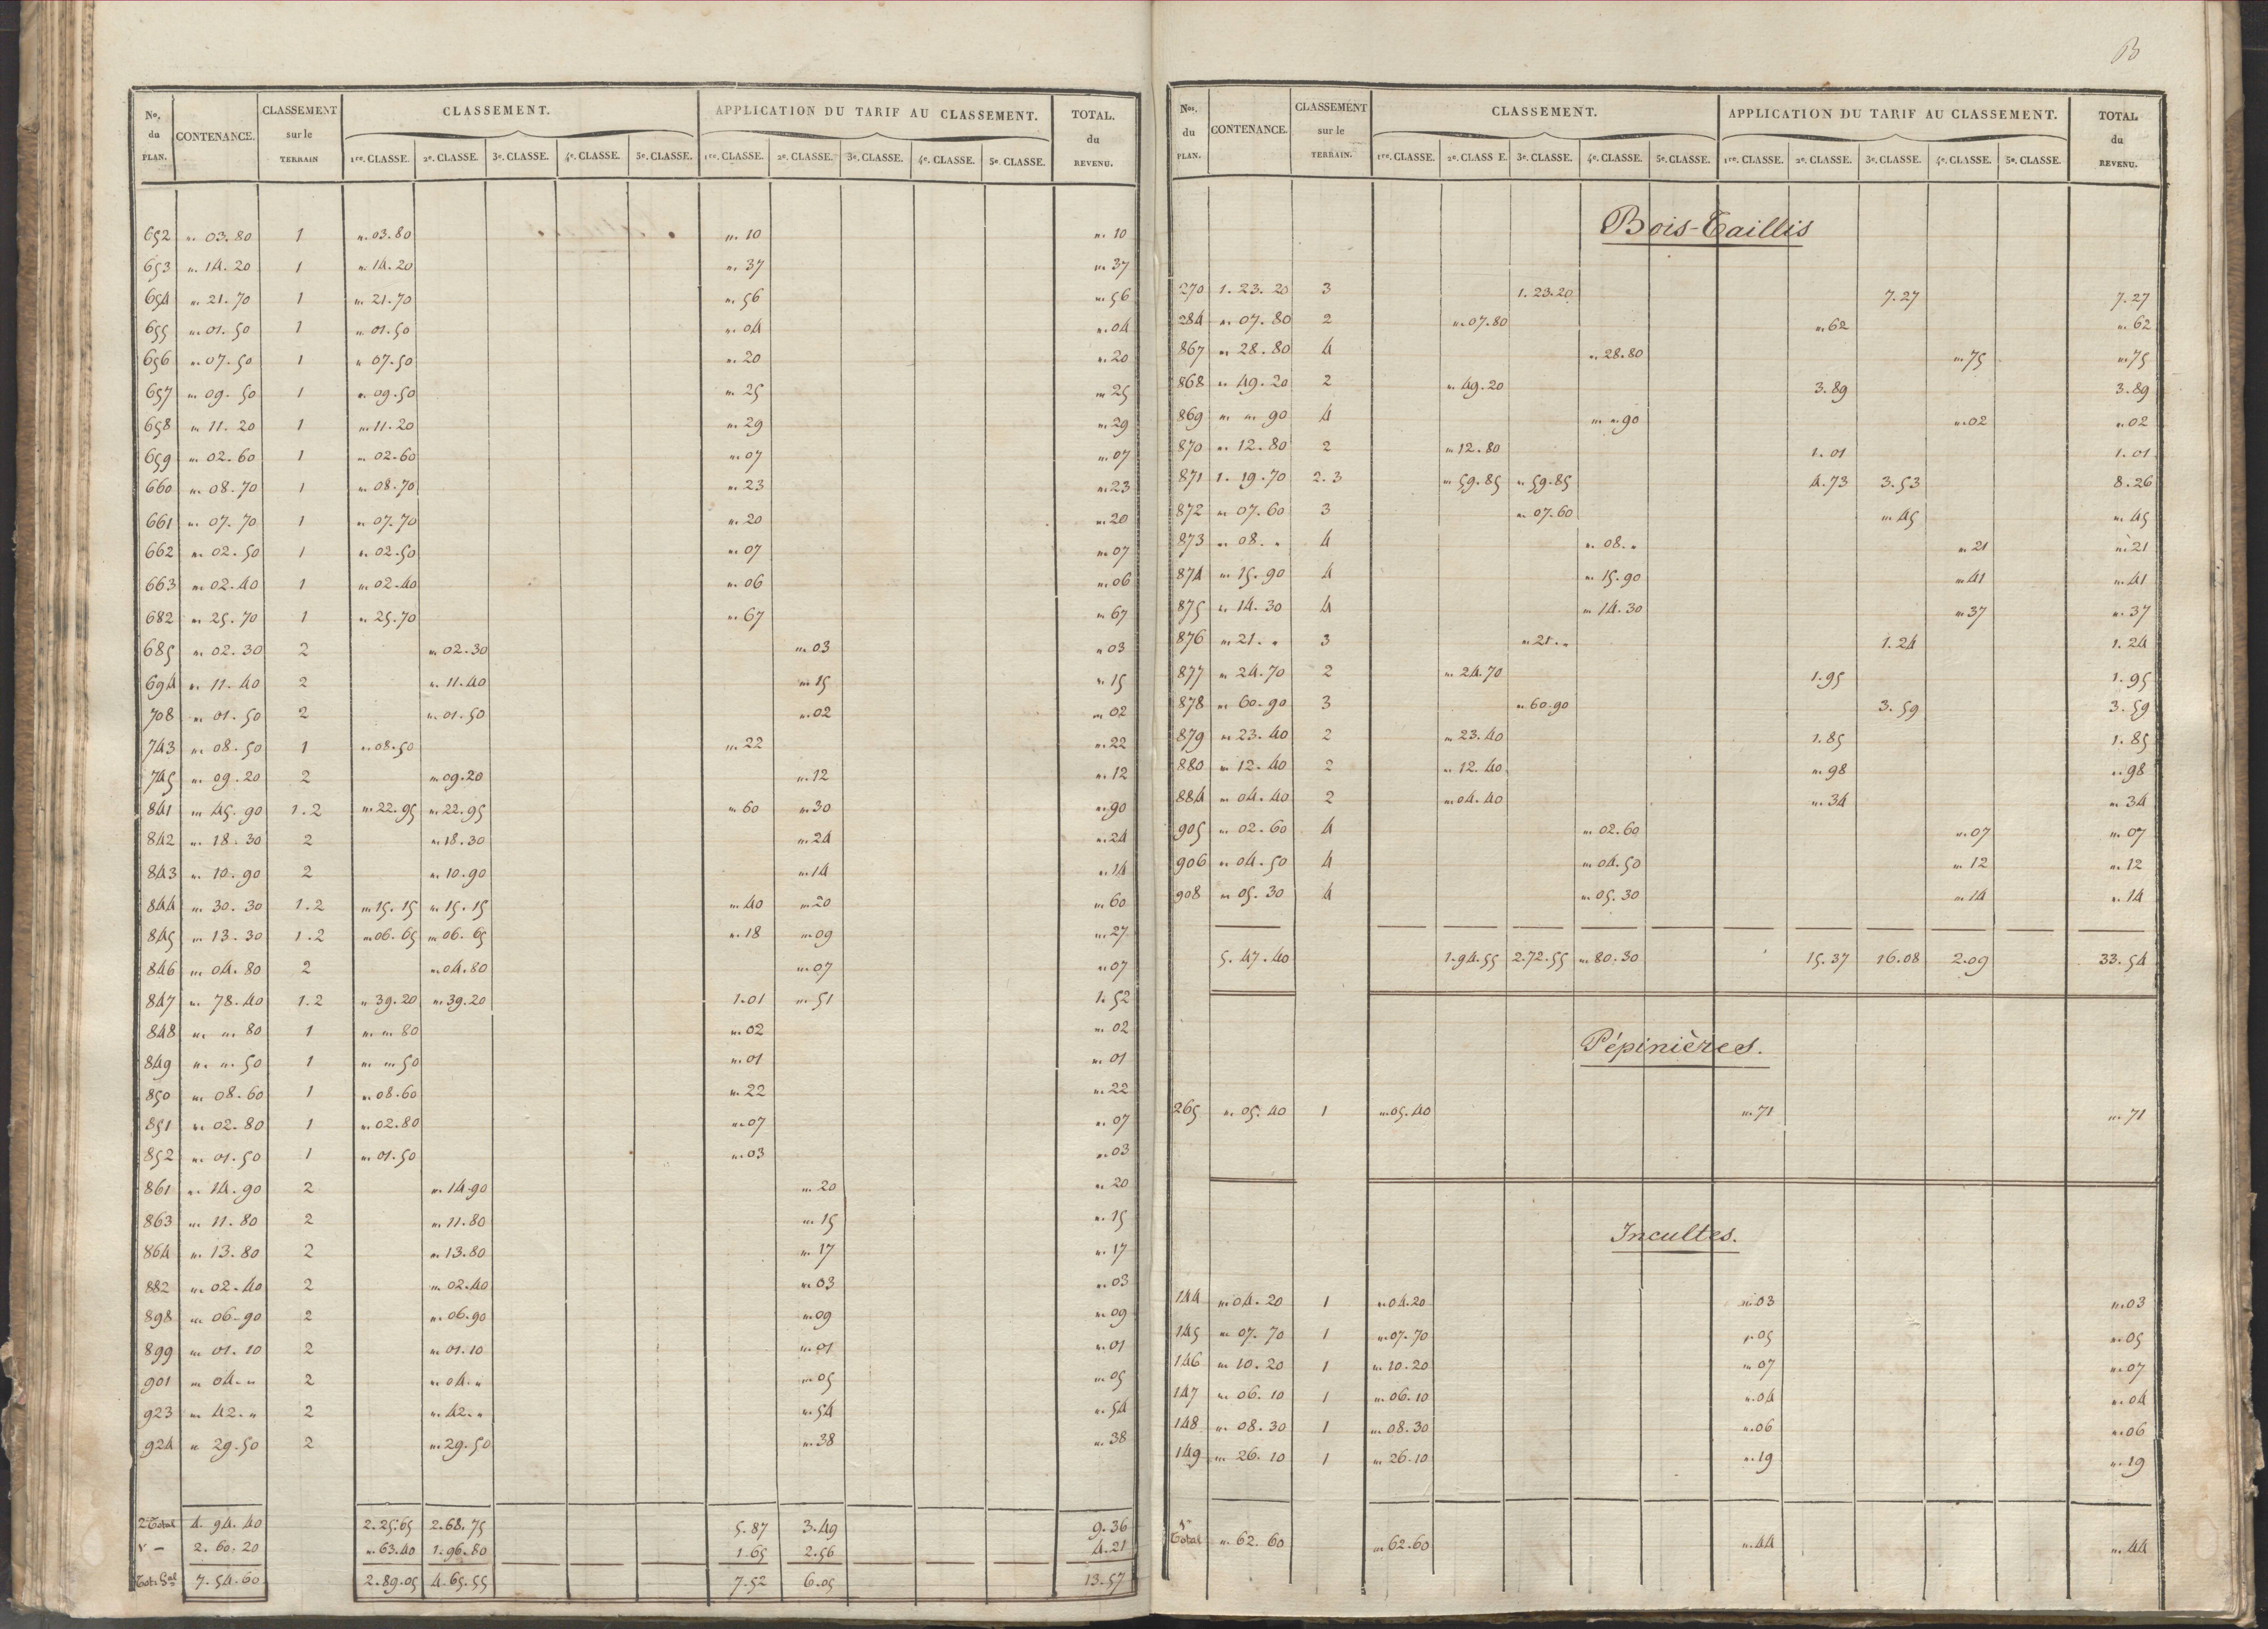 No. du PLAN. CONTENANCE. CLASSEMENT sur le TERRAIN CLASSEMENT. APPLICATION DU TARIF AU CLASSEMENT. TOTAL. du REVENU.
1re. CLASSE. 2e. CLASSE. 3e. CLASSE. 4e. CLASSE. 5e. CLASSE. 1re. CLASSE. 2e. CLASSE. 3e. CLASSE. 4e. CLASSE. 5e. CLASSE.
652 " 03.80 1 " 03.80 " 10 " 10
653 " 14.20 1 " 14.20 " 37 " 37
654 " 21.70 1 " 21.70 " 56 " 56
655 " 01.50 1 " 01.50 " 04 " 04
656 " 07.50 1 " 07.50 " 20 " 20
657 " 09.50 1 " 09.50 " 25 " 25
658 " 11.20 1 " 11.20 " 29 " 29
659 " 02.60 1 " 02.60 " 07 " 07
660 " 08.70 1 " 08.70 " 23 " 23
661 " 07.70 1 " 07.70 " 20 " 20
662 " 02.50 1 " 02.50 " 07 " 07
663 " 02.40 1 " 02.40 " 06 " 06
682 " 25.70 1 " 25.70 " 67 " 67
685 " 02.30 2 " 02.30 " 03 " 03
694 " 11.40 2 " 11.40 " 15 " 15
708 " 01.50 2 " 01.50 " 02 " 02
743 " 08.50 1 " 08.50 " 22 " 22
745 " 09.20 2 " 09.20 " 12 " 12
841 " 45.90 1.2 " 22.95 " 22.95 " 60 " 30 " 90
842 " 18.30 2 " 18.30 " 24 " 24
843 " 10.90 2 " 10.90 " 14 " 14
844 " 30.30 1.2 " 15.15 " 15.15 " 40 " 20 " 60
845 " 13.30 1.2 " 06.65 " 06.65 " 18 " 09 " 27
846 " 04.80 2 " 04.80 " 07 " 07
847 " 78.40 1.2 " 39.20 " 39.20 1.01 " 51 1.52
848 " " 80 1 " " 80 " 02 " 02
849 " " 50 1 " " 50 " 01 " 01
850 " 08.60 1 " 08.60 " 22 " 22
851 " 02.80 1 " 02.80 " 07 " 07
852 " 01.50 1 " 01.50 " 03 " 03
861 " 14.90 2 " 14.90 " 20 " 20
863 " 11.80 2 " 11.80 " 15 " 15
864 " 13.80 2 " 13.80 " 17 " 17
882 " 02.40 2 " 02.40 " 03 " 03
898 " 06.90 2 " 06.90 " 09 " 09
899 " 01.10 2 " 01.10 " 01 " 01
901 " 04. " 2 " 04. " " 05 " 05
923 " 42. " 2 " 42. " " 54 " 54
924 " 29.50 2 " 29.50 " 38 " 38
2 Total 4.94.40 2.25.65 2.68.75 5.87 3.49 9.36
2.60.20 " 63.40 1.96.80 1.65 2.56 4.21
Tot. Gal 7.54.60 2.89.05 4.65.55 7.52 6.05 13.57
Nos. du PLAN. CONTENANCE. CLASSEMENT sur le TERRAIN. CLASSEMENT. APPLICATION DU TARIF AU CLASSEMENT. TOTAL du REVENU.
1re. CLASSE. 2e. CLASS E. 3e. CLASSE. 4e. CLASSE. 5e. CLASSE. 1re. CLASSE. 2e. CLASSE. 3e. CLASSE. 4e. CLASSE. 5e. CLASSE.
Bois-Taillis
270 1.23.20 3 1.23.20 7.27 7.27
284 " 07.80 2 " 07.80 " 62 " 62
867 " 28.80 4 " 28.80 " 75 " 75
868 " 49.20 2 " 49.20 3.89 3.89
869 " " 90 4 " " 90 " 02 " 02
870 " 12.80 2 " 12.80 1.01 1.01
871 1.19.70 2.3 " 59.85 " 59.85 4.73 3.53 8.26
872 " 07.60 3 " 07.60 " 45 " 45
873 " 08. " 4 " 08. " " 21 " 21
874 " 15.90 4 " 15.90 " 41 " 41
875 " 14.30 4 " 14.30 " 37 " 37
876 " 21. " 3 " 21. " 1.24 1.24
877 " 24.70 2 " 24.70 1.95 1.95
878 " 60.90 3 " 60.90 3.59 3.59
879 " 23.40 2 " 23.40 1.85 1.85
880 " 12.40 2 " 12.40 " 98 " 98
884 " 04.40 2 " 04.40 " 34 " 34
905 " 02.60 4 " 02.60 " 07 " 07
906 " 04.50 4 " 04.50 " 12 " 12
908 " 05.30 4 " 05.30 " 14 " 14
5.47.40 1.94.55 2.72.55 " 80.30 15.37 16.08 2.09 33.54
Pépinières.
265 " 05.40 1 " 05.40 " 71 " 71
Incultes.
144 " 04.20 1 " 04.20 " 03 " 03
145 " 07.70 1 " 07.70 " 05 " 05
146 " 10.20 1 " 10.20 " 07 " 07
147 " 06.10 1 " 06.10 " 04 " 04
148 " 08.30 1 " 08.30 " 06 " 06
149 " 26.10 1 " 26.10 " 19 " 19
Total " 62.60 " 62.60 " 44 " 44